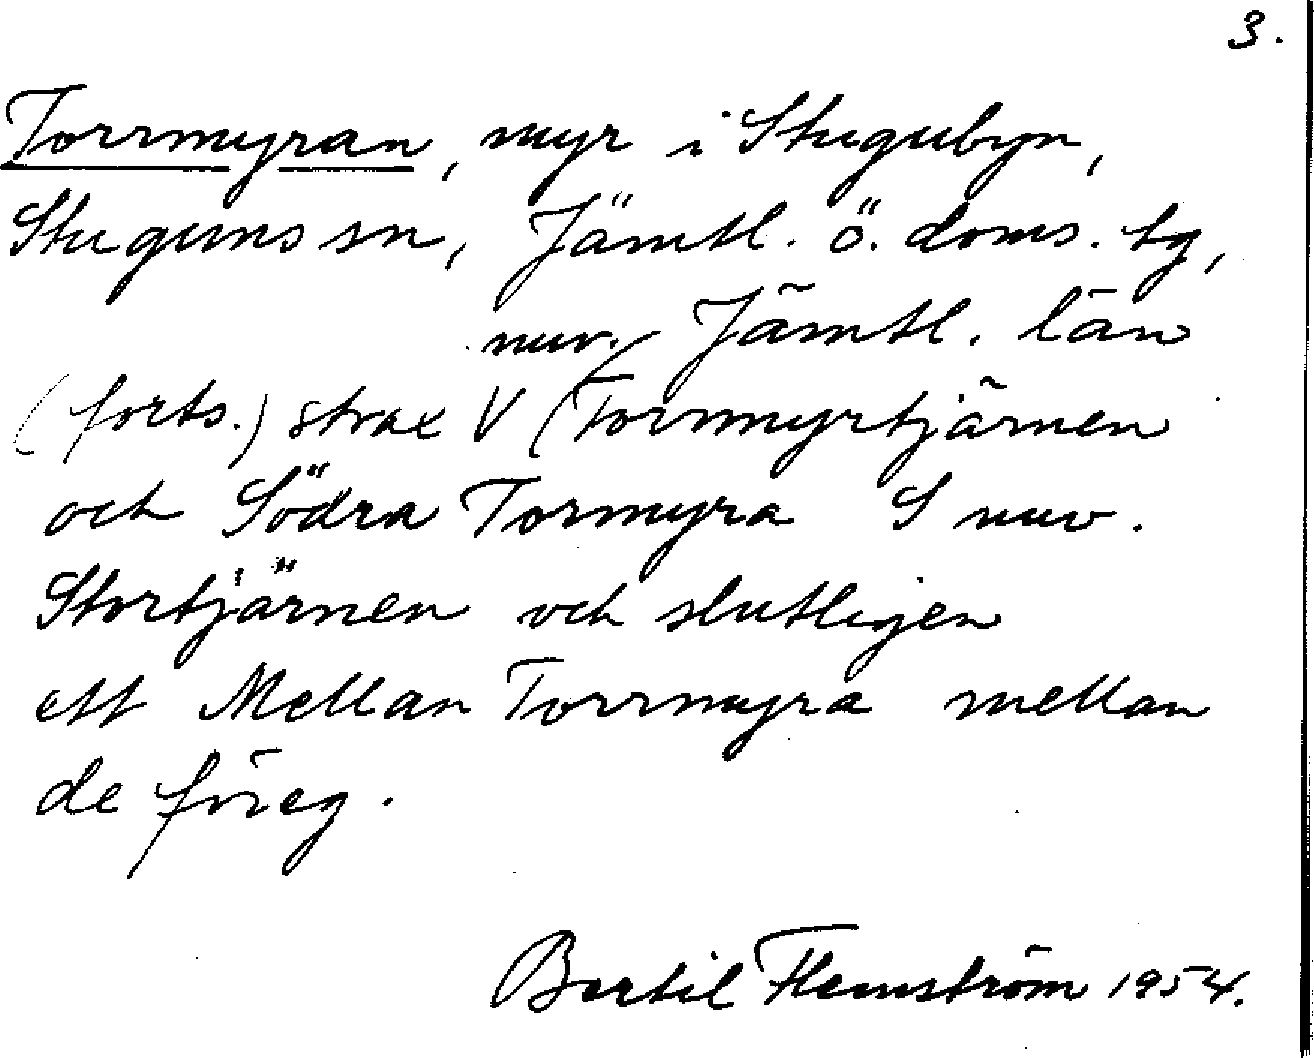 3.
Torrmyran, myr i Stugubyn,
Stuguns sn, Jämtl. ö. doms. tg,
nuv. Jämtl. län
(forts.) strax V (Torrmyrtjärnen
och Södra Tormyra S nuv.
Stortjärnen och slutligen
ett Mellan Torrmyra mellan
de föreg.
Bertil Flemström 1954.